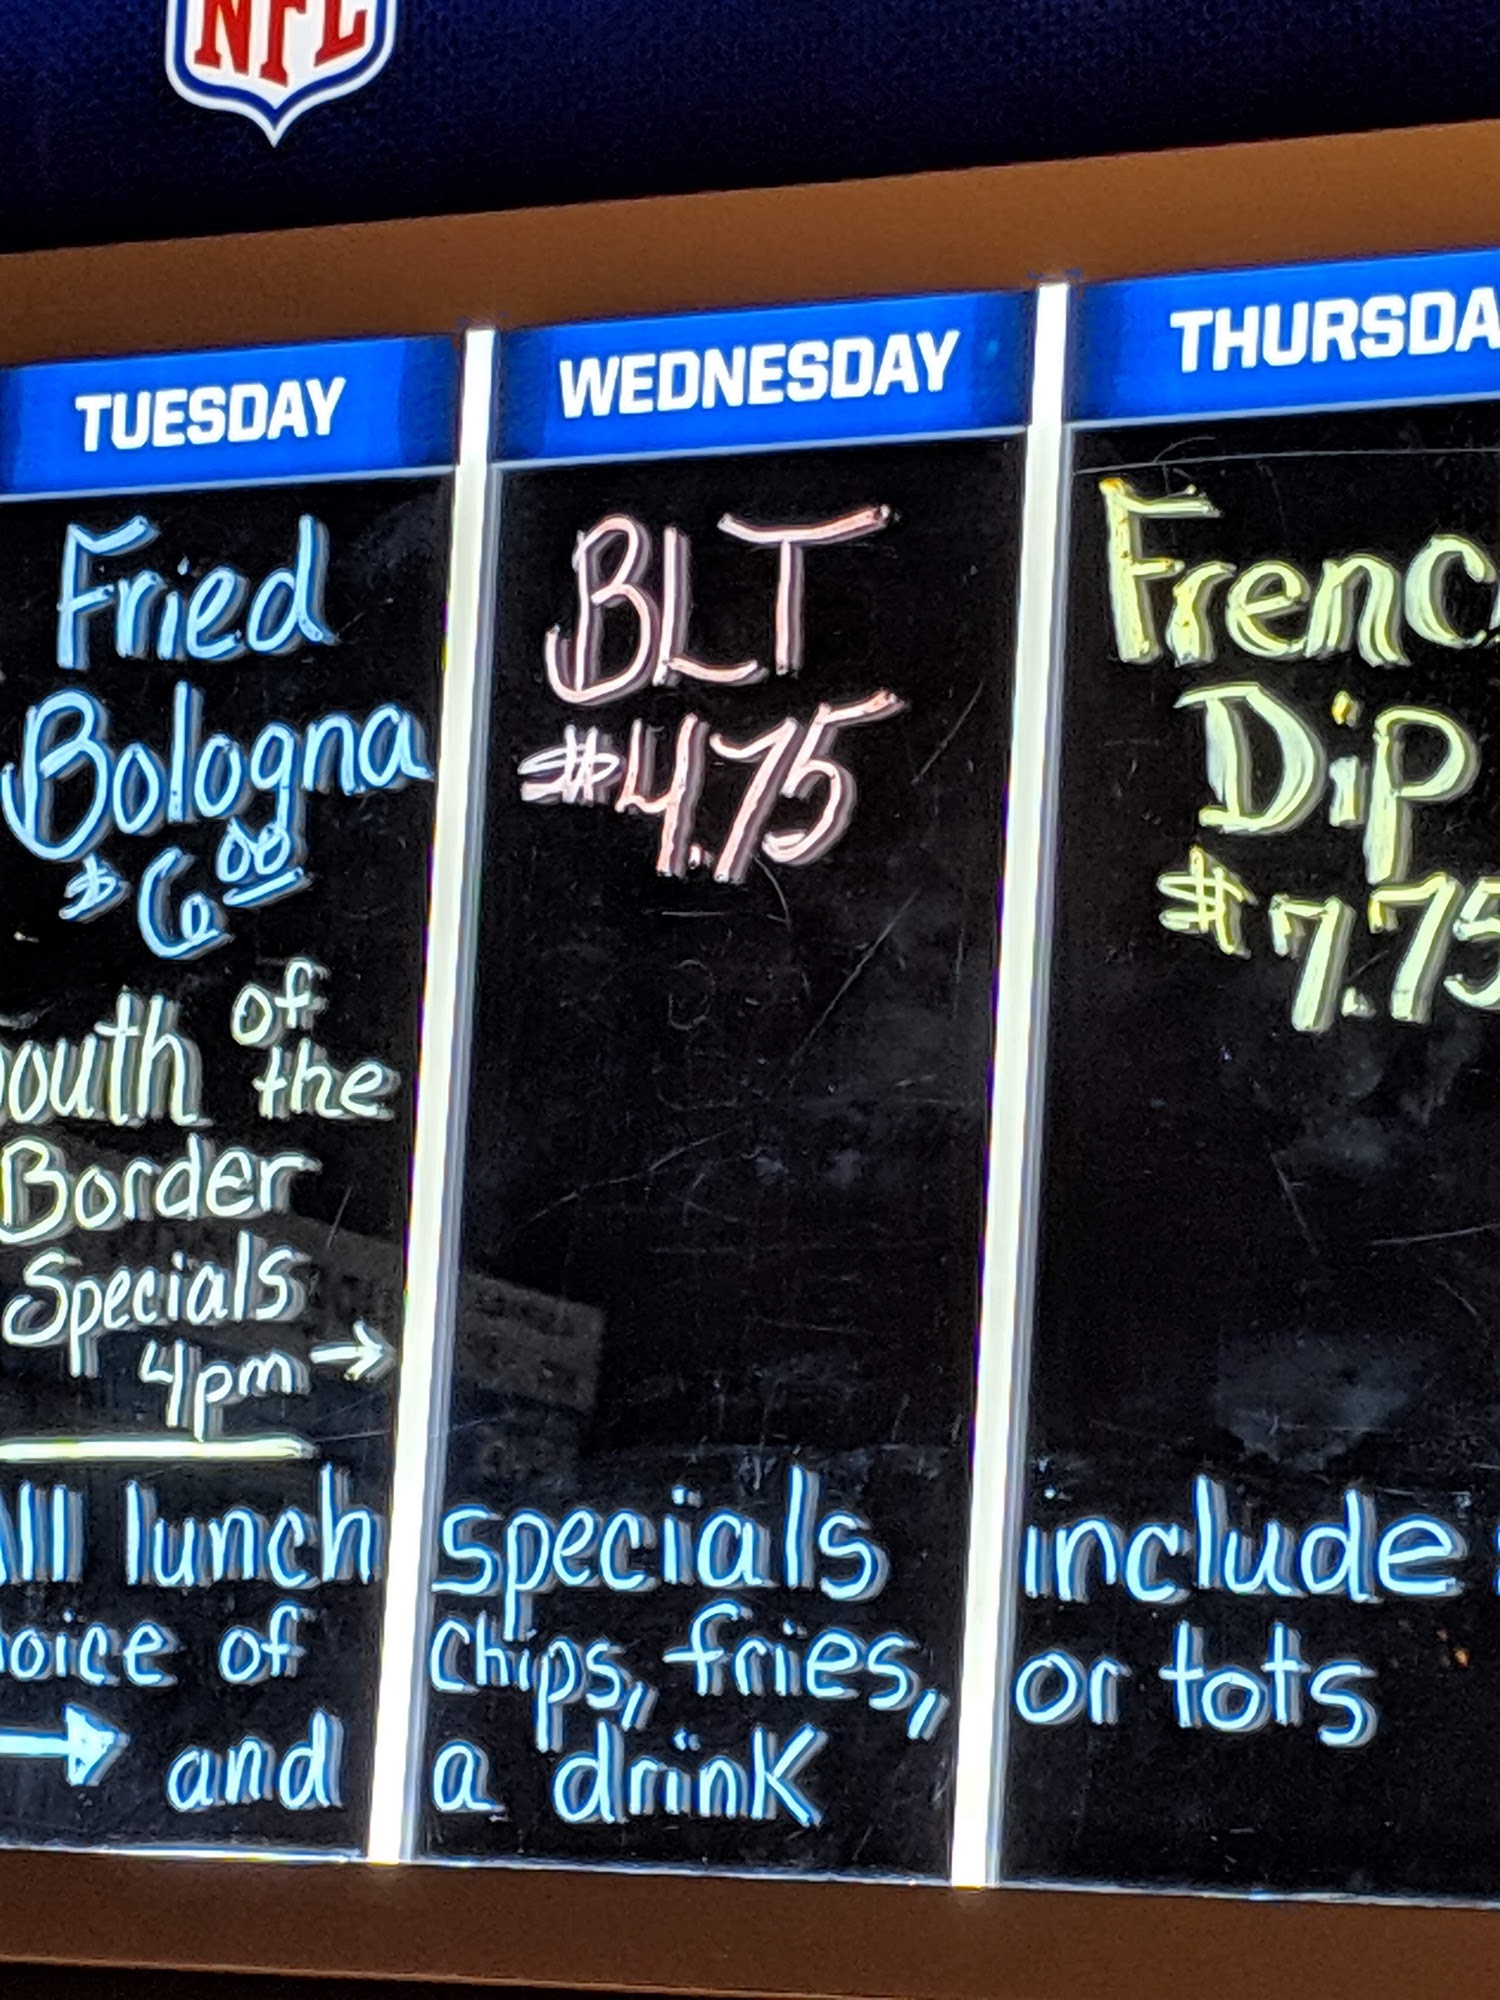 NFL
TUESDAY
Fried
Bologna
$6.00
outh of
the
Border
Specials
4pm →
WEDNESDAY
BLT
$4.75
THURSDA
Frenc
Dip
$7.75
ll lunch specials include
oice of chips, fries, or tots
→ and a drink